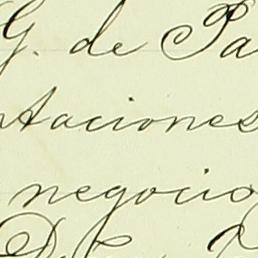 G. de Pa
taciones
negocio